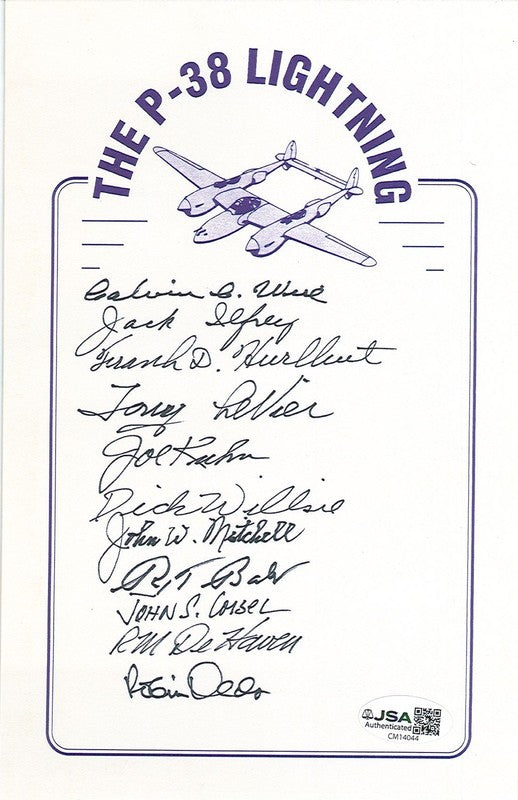 THE P-38 LIGHTNING
Calvin C. Wire
Jack Ilfrey
Frank D. Hurlbut
Tony LeVier
Joe Kuhn
Dick Willsie
John W. Mitchell
JOHN S.
RM DeHaven
Robin Olds
JSA
Authenticated
CM14044